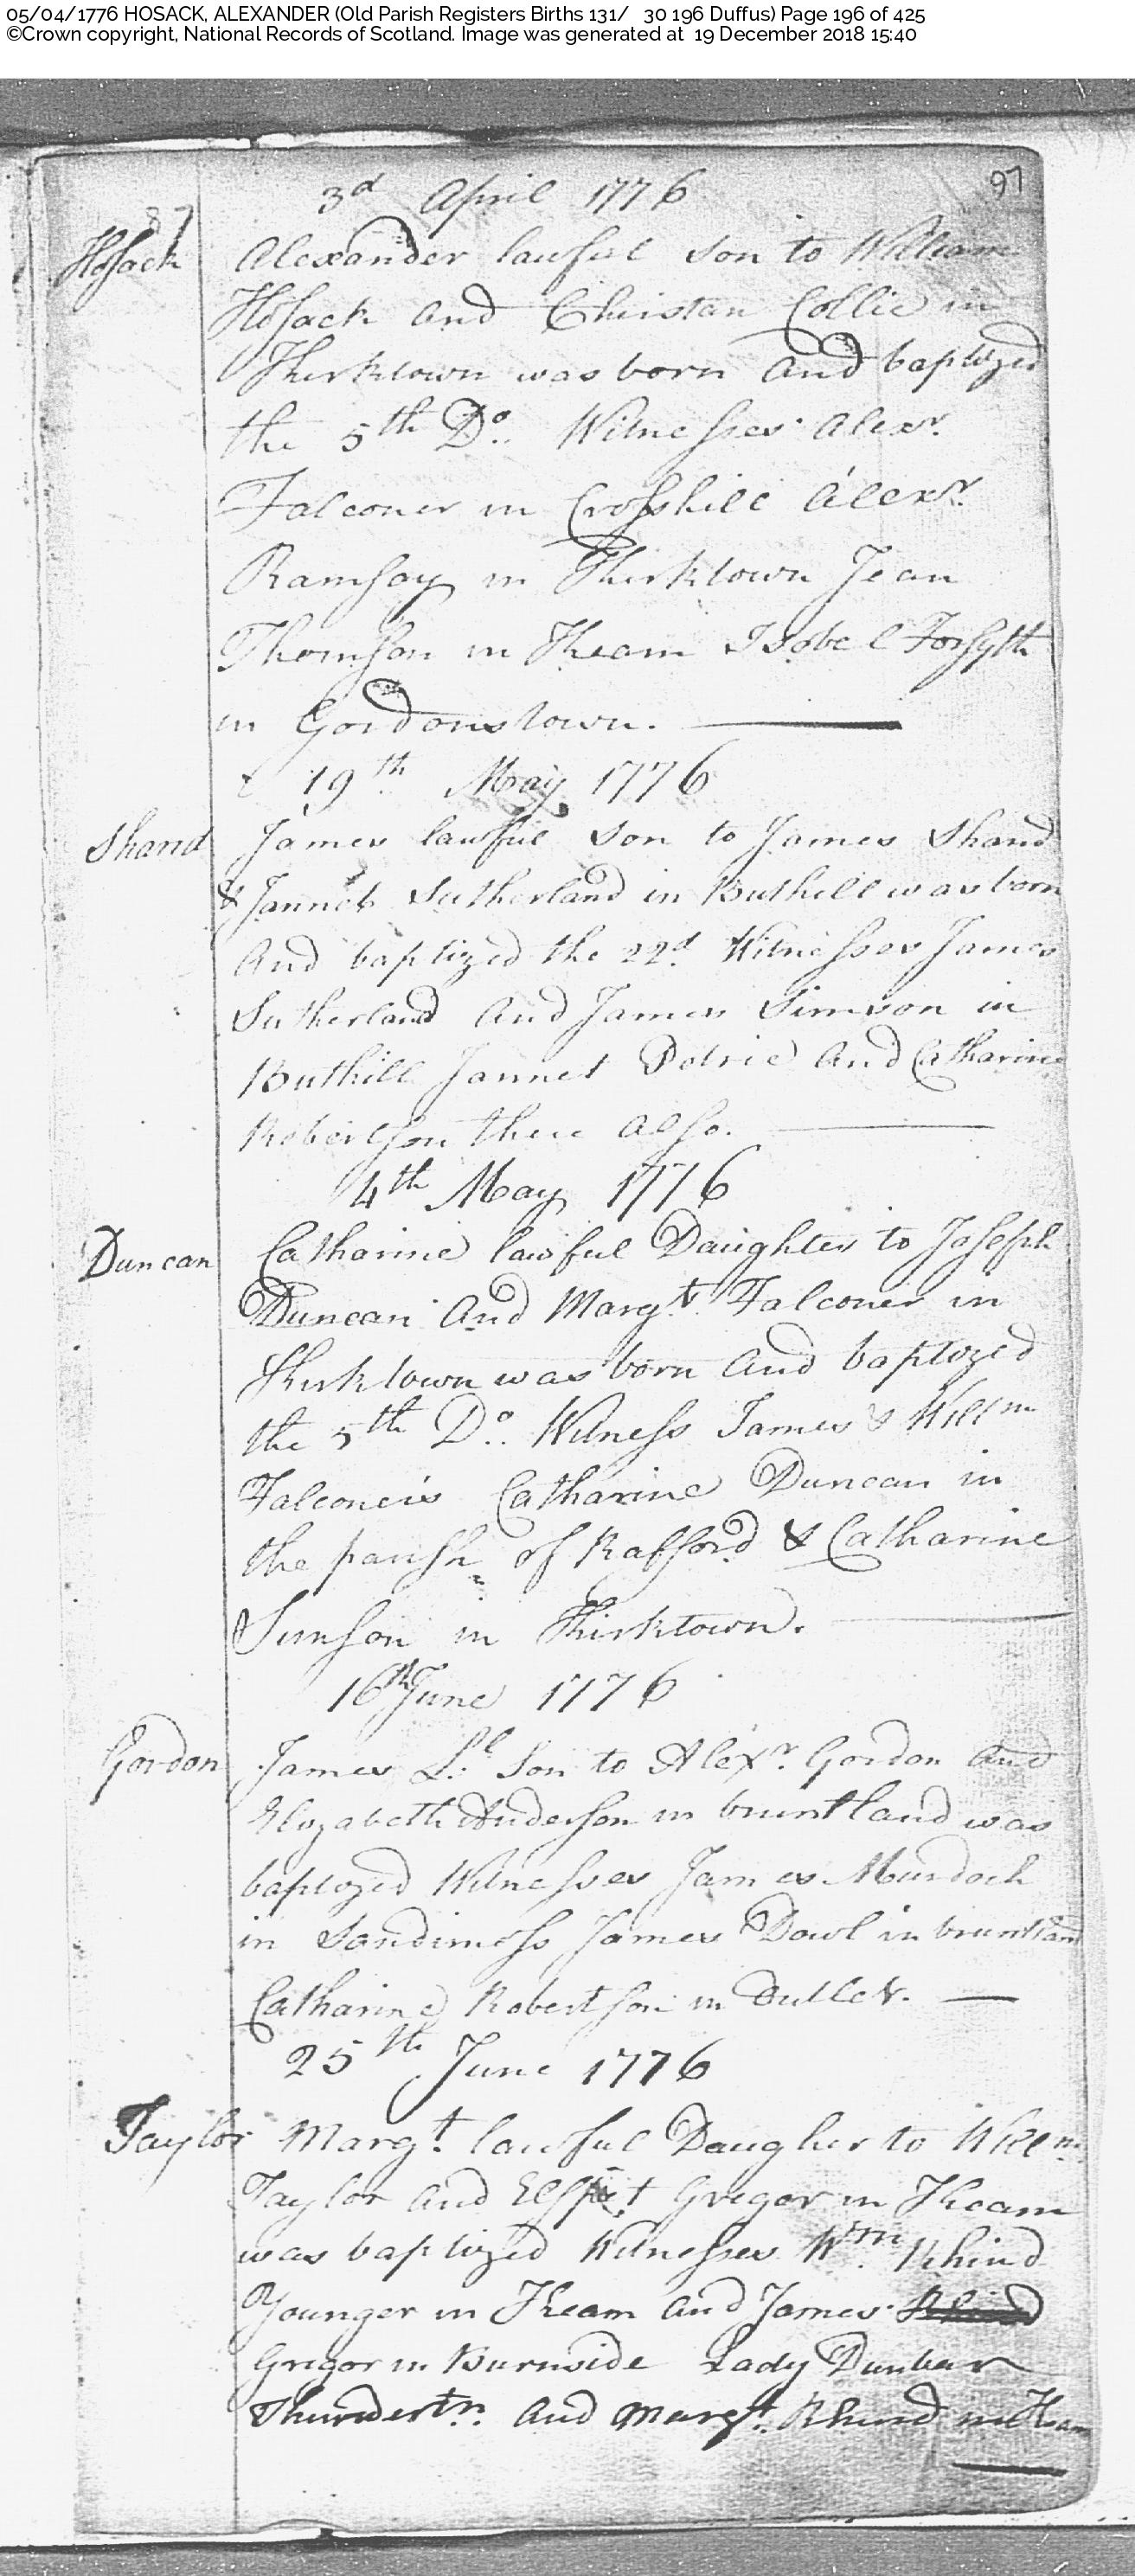 05/04/1776 HOSACK, ALEXANDER (Old Parish Registers Births 131/ 30 196 Duffus) Page 196 of 425
©Crown copyright, National Records of Scotland. Image was generated at 19 December 2018 15:40
97
3d April 1776
87
Hosack Alexander lawful Son to William
Hosack and Christan Collie in
Kirktown was born and baptized
the 5th Do. Witnesses Alexr.
Falconer in Crosshill Alexr.
Ramsay in Kirktown Jean
Thomson in Keam Isobel Forsyth
in Gordonstown.
19th May 1776
Shand James lawful Son to James Shand
& Jannet Sutherland in Buthill was born
And baptized the 22d. Witnesses James
Sutherland And James Simson in
Buthill Jannet Petrie And Catharine
Robertson there also.
4th May 1776
Duncan Catharine lawful Daughter to Joseph
Duncan And Margt. Falconer in
Kirktown was born And baptized
the 5th Do. Witness James & Willm
Falconers Catharine Duncan in
the parish of Rafford & Catharine
Simson in Kirktown.
16th June 1776
Gordon James Ll. Son to Alexr. Gordon And
Elizabeth Anderson in bruntland was
baptized Witnesses James Murdoch
in Sandimoss James Dowl in bruntland
Catharine Robertson in
25th June 1776
Taylor Margt. lawful Daugher to Willm.
Taylor And Elspet Gregor in Keam
was baptized Witnesses Wm. Rhind
Younger in Keam And James
Gregor in Burnside Lady Dunbar
Thundertn. And Margt. Rhind in Keam